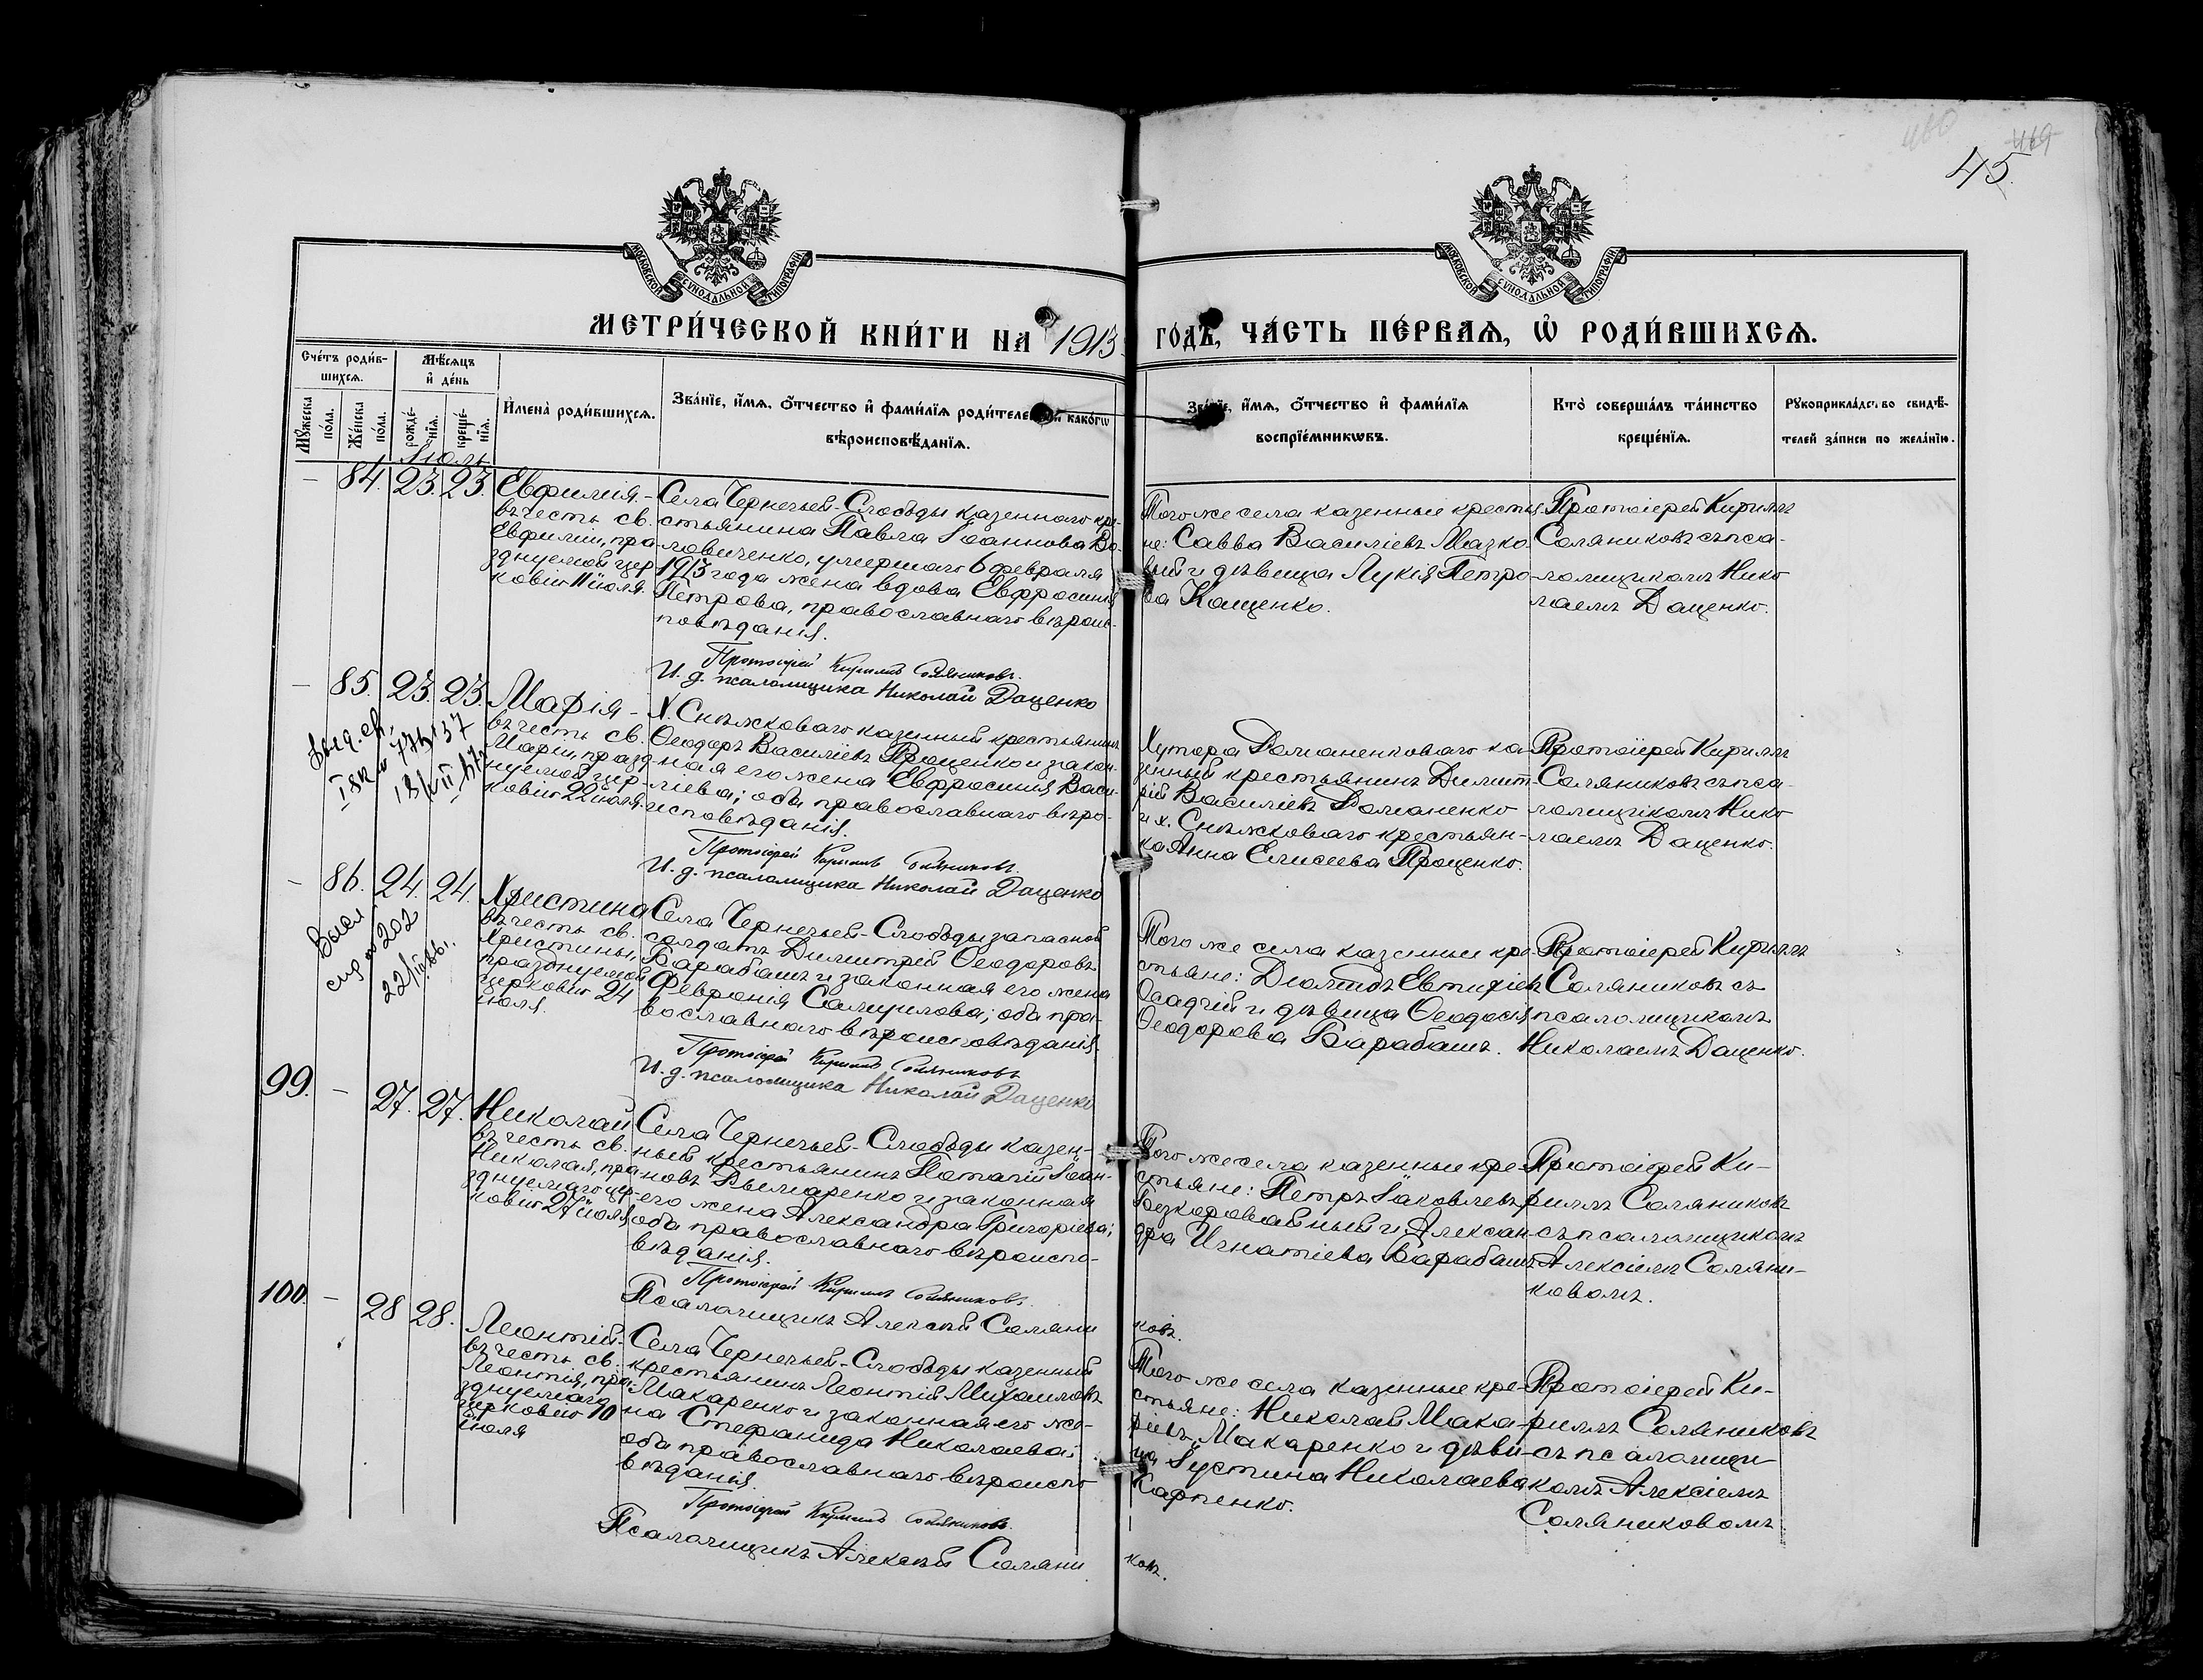 460
469
45.
МОСКОВСКОЙ СѴНОДАЛЬНОЙ ТИПОГРАФІИ
МОСКОВСКОЙ СѴНОДАЛЬНОЙ ТИПОГРАФІИ
МЕТРИ́ЧЕСКОЙ КНИ́ГИ НА 1913 ГО́ДЪ, ЧА́СТЬ ПЕ́РВАѦ, Ѽ РОДИ́ВШИХСѦ.
Сче́тъ роди́в-
шихсѧ.
Мѣ́сѧцъ
и҆ де́нь
Мꙋ́жеска
по́ла.
Же́нска
по́ла.
рожде́-
нїѧ.
креще́-
нїѧ.
И҆мена̀ роди́вшихсѧ.
Зва́нїе, и҆́мѧ, ѻ҆́тчество и҆ фами́лїѧ роди́телей, и҆ како́гѡ
вѣроисповѣ́данїѧ.
Зва́нїе, и҆́мѧ, ѻ҆́тчество и҆ фами́лїѧ
воспрїе́мникѡвъ.
Кто̀ соверша́лъ та́инство
креще́нїѧ.
Рꙋкоприкла́дство свидѣ́-
телей за́писи по жела́нїю.
Іюль
— 84. 23. 23.
Евфимія. –
въ честь св.
Евфиміи, пра-
зднуемой цер
ковію 11 іюля.
Села Чернечьей-Слободы казеннаго кре-
стьянина Павла Іоаннова Во-
ловиченко, умершаго 6 февраля
1913 года жена вдова Евфросинія
Петрова, православнаго вѣроис-
повѣданія.
Протоіерей Кириллъ Соляниковъ.
И. д. псаломщика Николай Даценко
Того же села казенные крестья-
не: Савва Василіевъ Мазко-
вый и дѣвица Лукія Петро-
ва Кащенко.
Протоіерей Кириллъ
Соляниковъ съ пса-
ломщикомъ Нико
лаемъ Даценко.
— 85. 23. 23.
Марія –
въ честь св.
Маріи, празд-
нуемой цер-
ковію 22 іюля.
Х. Снѣжковаго казенный крестьянинъ
Ѳеодоръ Василіевъ Проценко и закон-
ная его жена Евфросинія Васи-
ліева; оба православнаго вѣро-
исповѣданія.
Протоіерей Кириллъ Соляниковъ.
И. д. псаломщика Николай Даценко
Хутора Романенковаго ка-
зенный крестьянинъ Димит-
рій Василіевъ Романенко
и х. Снѣжковаго крестьян-
ка Анна Елисеева Проценко.
Протоіерей Кириллъ
Соляниковъ съ пса-
ломщикомъ Нико
лаемъ Даценко.
— 86. 24. 24.
Христина
въ честь св.
Христины,
празднуемой
церковію 24
іюля.
Села Чернечьей-Слободы запасной
солдатъ Димитрій Ѳеодоровъ
Барабашъ и законная его жена
Февронія Самуилова; оба пра-
вославнаго вѣроисповѣданія.
Протоіерей Кириллъ Соляниковъ
И. д. псаломщика Николай Даценко
Того же села казенные кре-
стьяне: Діомидъ Евтихіевъ
Осадчій и дѣвица Ѳеодосія
Ѳеодорова Барабашъ.
Протоіерей Кириллъ
Соляниковъ съ
псаломщикомъ
Николаемъ Даценко.
99. — 27. 27.
Николай
въ честь св.
Николая, пра-
зднуемаго цер-
ковію 27 іюля
Села Чернечьей-Слободы казен-
ный крестьянинъ Потапій Іоан-
новъ Дымаренко и законная
его жена Александра Григоріева;
оба православнаго вѣроиспо-
вѣданія.
Протоіерей Кириллъ Соляниковъ.
Псаломщикъ Алексѣй Соляни
ковъ.
Того же села казенные кре-
стьяне: Петръ Іаковлевъ
Безкоровайный и Алексан-
дра Игнатіева Барабашъ
Протоіерей Ки-
риллъ Соляниковъ
съ псаломщикомъ
Алексіемъ Соляни-
ковомъ.
100. — 28 28.
Леонтій.
въ честь св.
Леонтія, пра-
зднуемаго
церковію 10
іюля
Села Чернечьей-Слободы казенный
крестьянинъ Леонтій Михаиловъ
Макаренко и законная его же-
на Стефанида Николаева;
оба православнаго вѣроиспо
вѣданія.
Протоіерей Кириллъ Соляниковъ.
Псаломщикъ Алексѣй Соляни
ковъ.
Того же села казенные кре-
стьяне: Николай Мака-
ріевъ Макаренко и дѣви-
ца Іустина Николаева
Карпенко.
Протоіерей Ки-
риллъ Соляниковъ
съ псаломщи-
комъ Алексіемъ
Соляниковомъ.